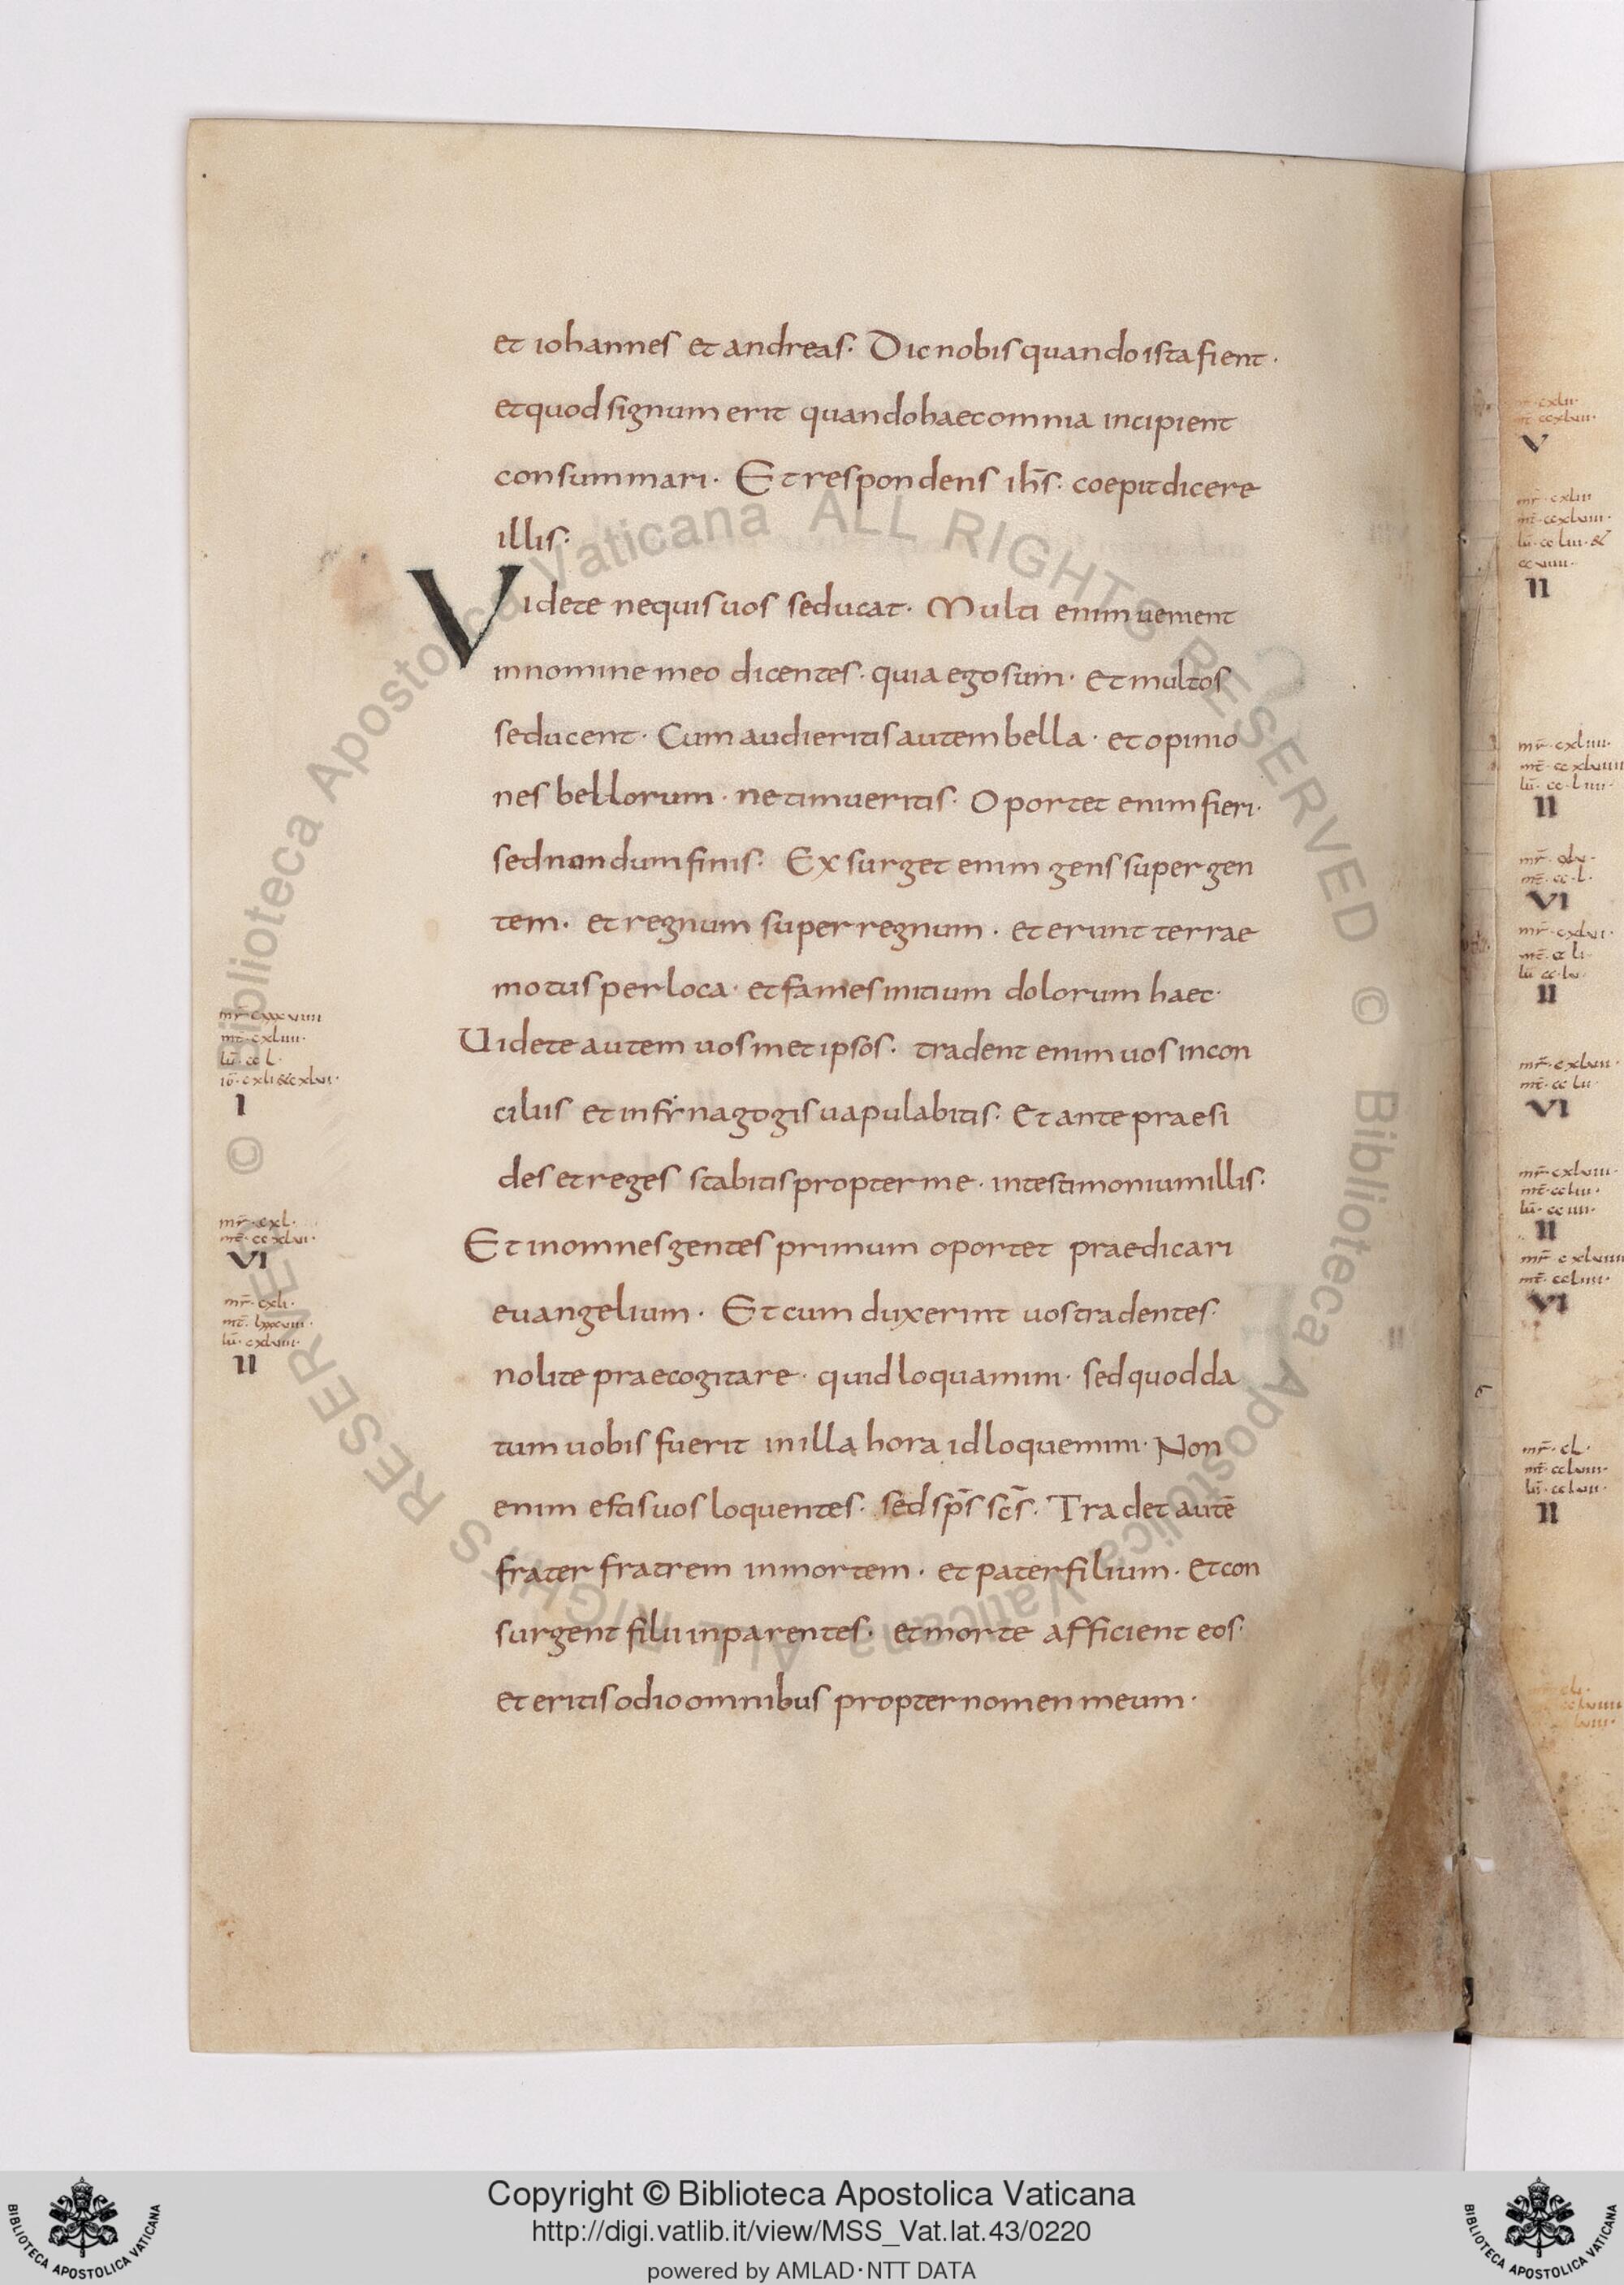 et iohannes et andreas· Dic nobis quando ista fient·
et quod signum erit quando haec omnia incipient
consummari· Et respondens ih̄s· coepit dicere
illis·
Videte ne quis uos seducat· Multi enim uenient
in nomine meo dicentes· quia ego sum· et multos
seducent· Cum audieritis autem bella· et opinio
nes bellorum· ne timueritis· Oportet enim fieri·
sed nondum finis· Exsurget enim gens super gen
tem· et regnum super regnum· et erunt terrae
motus per loca· et fames initium dolorum haec·
Uidete autem uosmet ipsos· tradent enim uos in con
ciliis et in synagogis uapulabitis· Et ante praesi
des et reges stabitis propter me· in testimonium illis·
Et in omnes gentes primum oportet praedicari
euangelium· Et cum duxerint uos tradentes·
nolite praecogitare· quid loquamini· sed quod da
tum uobis fuerit in illa hora id loquemini· Non
enim estis uos loquentes· sed sp̄s sc̄s· Tradet autē
frater fratrem in mortem· et pater filium· et con
surgent filii in parentes· et morte afficient eos·
et eritis odio omnibus propter nomen meum·
mr̄· cxxxuiiii
mt̄· cxliiii·
lū· cc l·
io̅· cxli & cxlui·
I
mr̄· cxl·
mt̄· ccxlui·
VI
mr̄· cxli·
mt̄· lxxxuiii·
lū· cxluiii·
II
V
II
II
VI
II
VI
II
VI
mr̄· cl·
II
© Biblioteca Apostolica Vaticana ALL RIGHTS RESERVED © Biblioteca Apostolica Vaticana ALL RIGHTS RESERVED
Copyright © Biblioteca Apostolica Vaticana
http://digi.vatlib.it/view/MSS_Vat.lat.43/0220
powered by AMLAD·NTT DATA
BIBLIOTECA APOSTOLICA VATICANA
BIBLIOTECA APOSTOLICA VATICANA